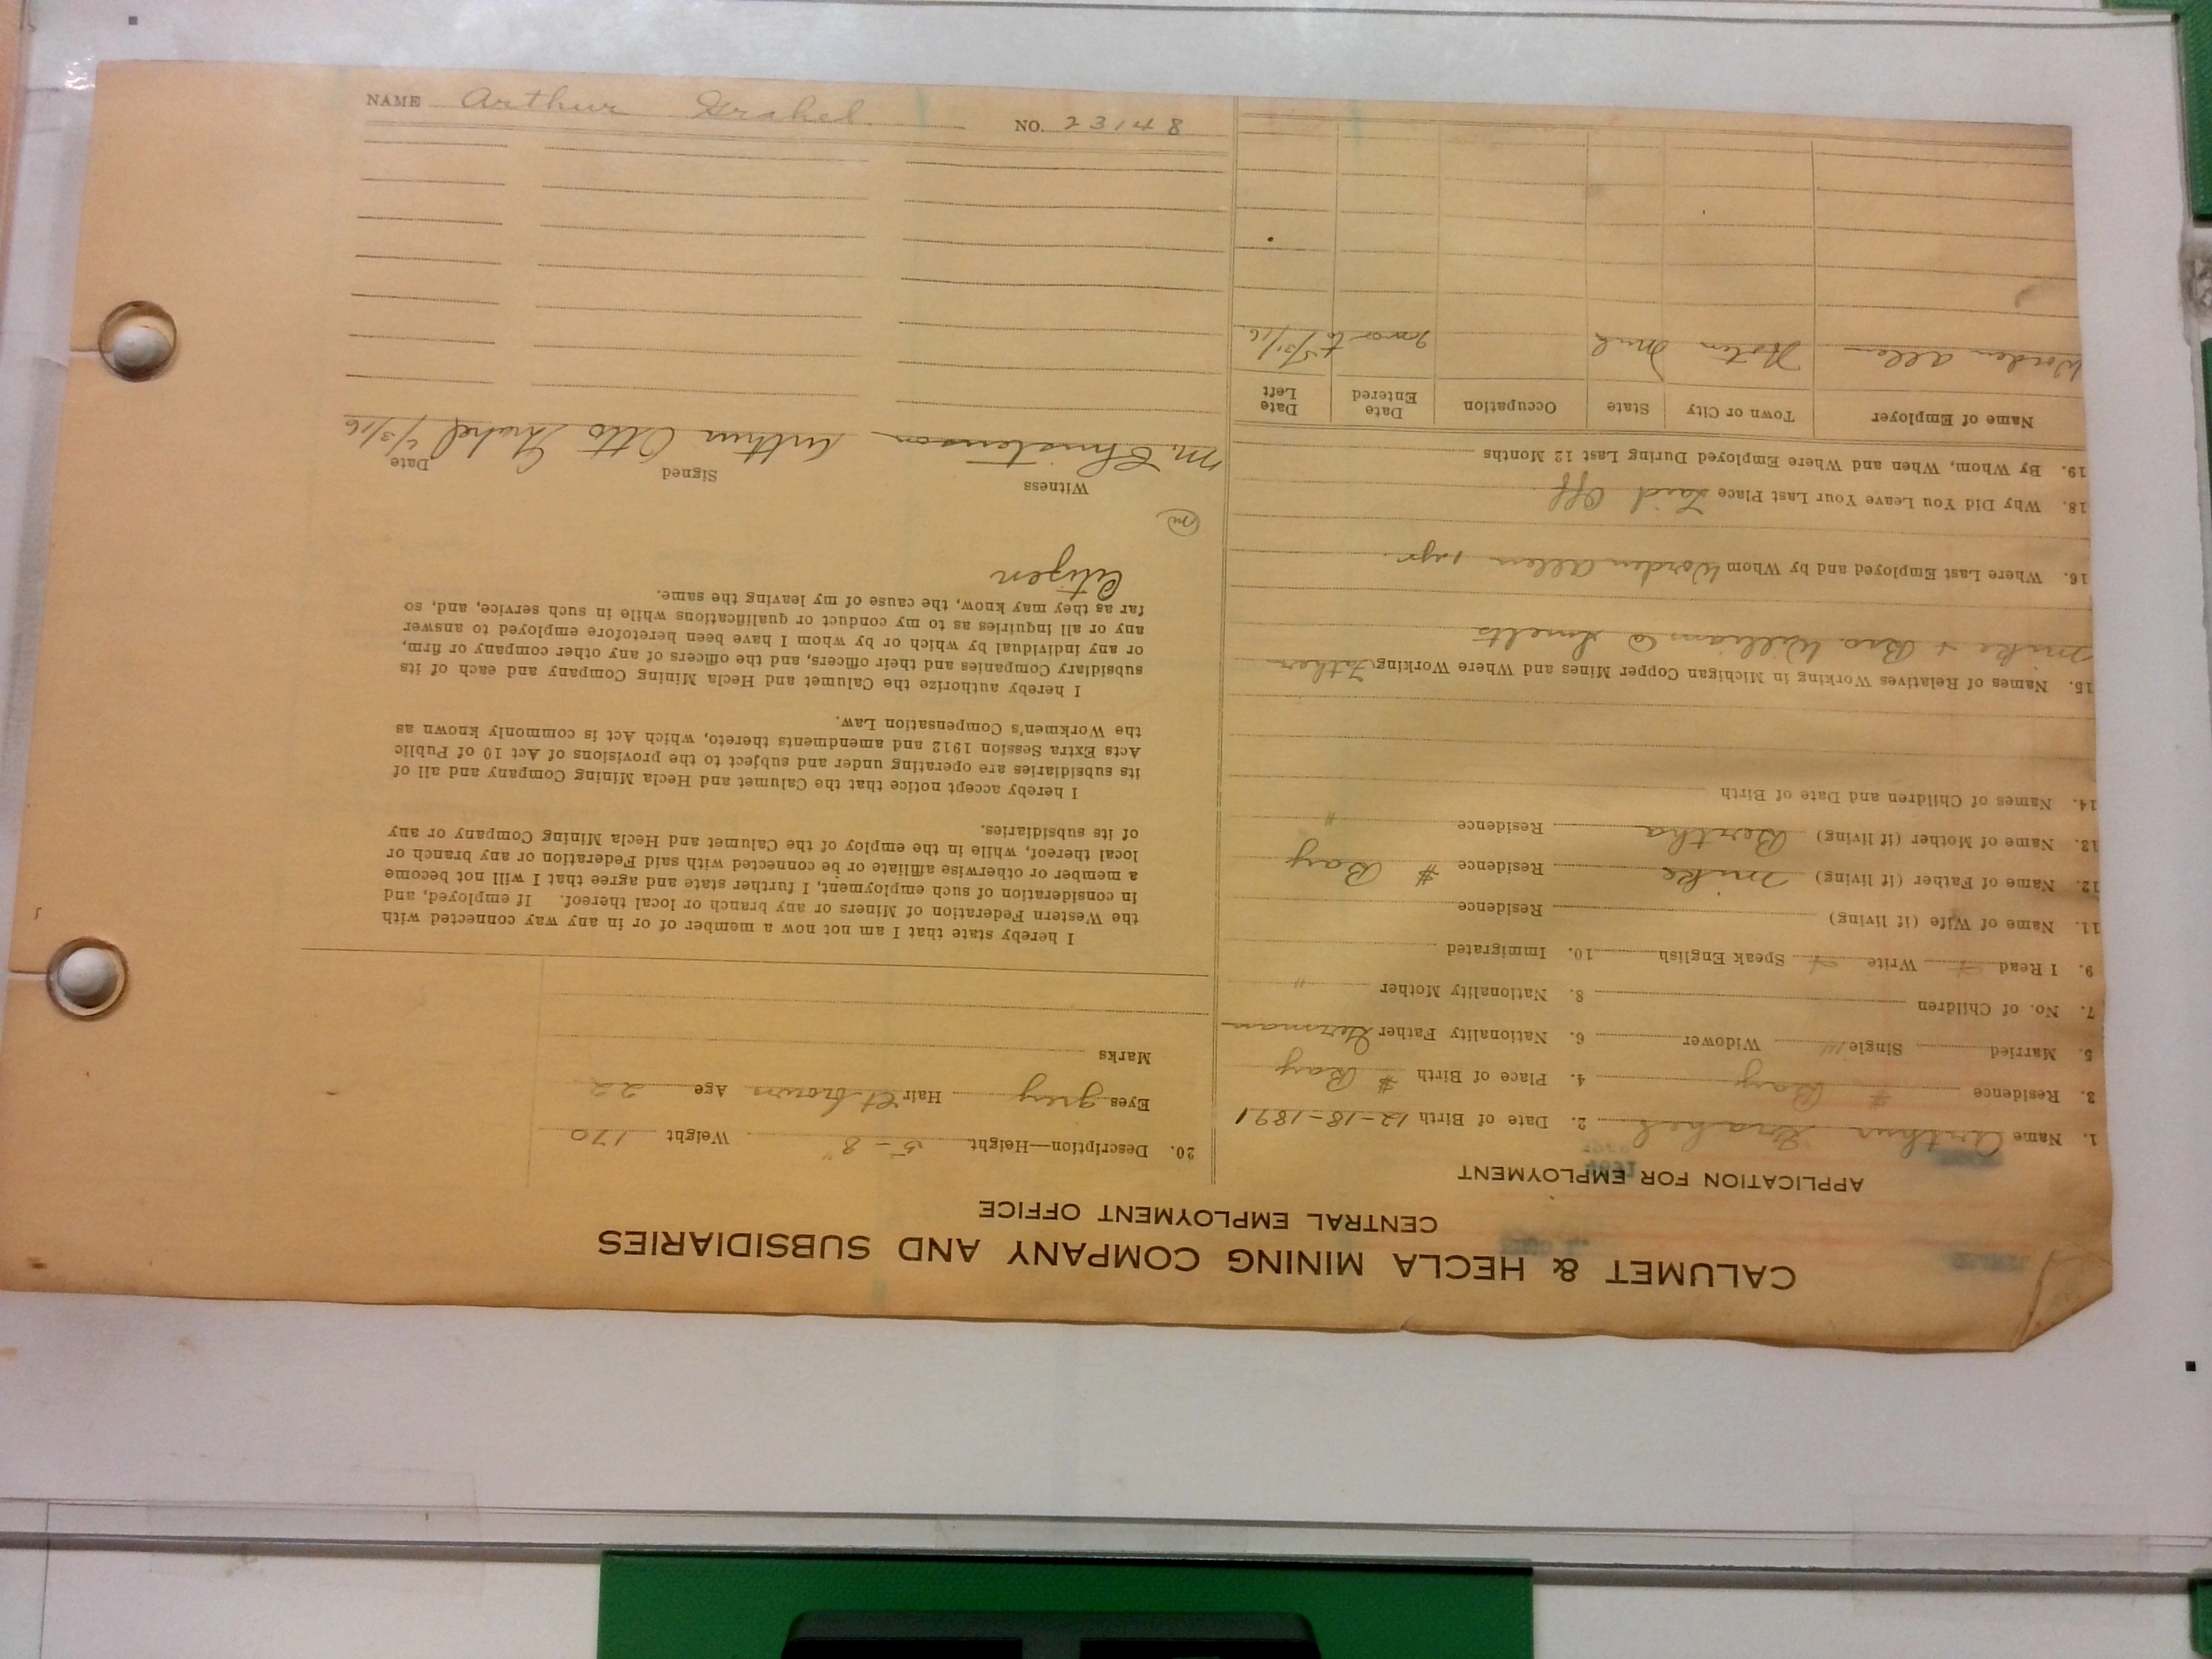 CALUMET & HECLA MINING COMPANY AND SUBSIDIARIES
CENTRAL EMPLOYMENT OFFICE
APPLICATION FOR EMPLOYMENT
1. Name Arthur Grahel 2. Date of Birth 12-18-1891
3. Residence # Bay 4. Place of Birth # Bay
5. Married Single Widower 6. Nationality Father German
7. No. of Children 8. Nationality Mother "
9. I Read Write Speak English 10. Immigrated
11. Name of Wife (if living) Residence
12. Name of Father (if living) Mike Residence # Bay
13. Name of Mother (if living) Bertha Residence "
14. Names of Children and Date of Birth
15. Names of Relatives Working in Michigan Copper Mines and Where Working Father
Mike + Bro. William @ Smelts
16. Where Last Employed and by Whom Worden Allen 1 yr.
18. Why Did You Leave Your Last Place Laid Off
19. By Whom, When and Where Employed During Last 12 Months
Name of Employer Town or City State Occupation Date Entered Date Left
Worden Allen Hoton Mich to 5/31/16
20. Description—Height 5-8" Weight 170
Eyes grey Hair lt brown Age 22
Marks
I hereby state that I am not now a member of or in any way connected with
the Western Federation of Miners or any branch or local thereof. If employed, and
in consideration of such employment, I further state and agree that I will not become
a member or otherwise affiliate or be connected with said Federation or any branch or
local thereof, while in the employ of the Calumet and Hecla Mining Company or any
of its subsidiaries.
I hereby accept notice that the Calumet and Hecla Mining Company and all of
its subsidiaries are operating under and subject to the provisions of Act 10 of Public
Acts Extra Session 1912 and amendments thereto, which Act is commonly known as
the Workmen's Compensation Law.
I hereby authorize the Calumet and Hecla Mining Company and each of its
subsidiary Companies and their officers, and the officers of any other company or firm,
or any individual by which or by whom I have been heretofore employed to answer
any or all inquiries as to my conduct or qualifications while in such service, and, so
far as they may know, the cause of my leaving the same.
Citizen
m
Witness Signed Date
M. Christenson Arthur Otto Grahel 6/3/16
NAME Arthur Grahel. NO. 23148